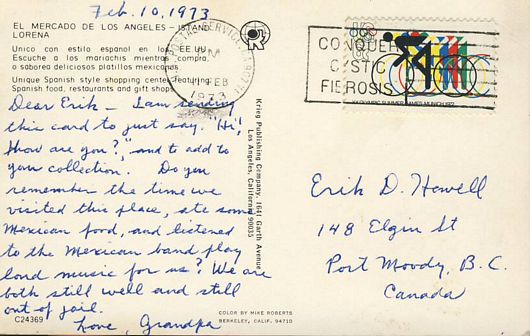 Feb. 10, 1973
EL MERCADO DE LOS ANGELES - ISTAND
LORENA
Unico con estilo espanol en los EE.UU.
Escuche a los mariachis mientras compra,
o saborea deliciosos platillos mexicanos.
Unique Spanish style shopping center featuring
Spanish food, restaurants and gift shops.
Dear Erik - I am sending
this card to just say "Hi!
How are you?", and to add to
your collection. Do you
remember the time we
visited this place, ate some
Mexican food, and listened
to the Mexican band play
loud music for us? We are
both still well and still
out of jail.
Love, Grandpa
C24369
Krieg Publishing Company, 1641 Garth Avenue
Los Angeles, California 90035
COLOR BY MIKE ROBERTS
BERKELEY, CALIF. 94710
POSTAL SERVICE
PM
11 FEB
1973
CONQUER
CYSTIC
FIBROSIS
US
6c
XX OLYMPIC SUMMER GAMES MUNICH 1972
Erik D. Howell
148 Elgin St
Port Moody, B.C.
Canada